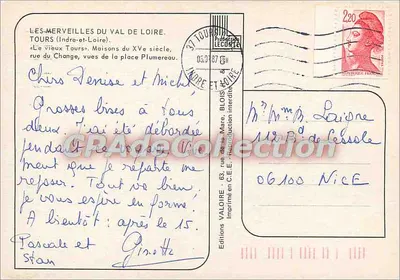 LES MERVEILLES DU VAL DE LOIRE.
TOURS (Indre-et-Loire).
«Le vieux Tours». Maisons du XVe siècle,
rue du Change, vues de la place Plumereau.
Chers Denise et Michel,
Grosses bises à tous
deux. J'ai été débordée
pendant les
ment que je reparte me
reposer. Tout va bien,
je vous espère en forme.
A bientôt : après le 15.
Pascale et Ginette
Stan
Editions VALOIRE - 63, rue BLOIS
Imprimé en C.E.E. Reproduction interdite
37 TOURS
INDRE ET LOIRE
2,20
Mr Mme B. Laidre
112 Bd de Cessole
06100 NICE
CPArama Collection